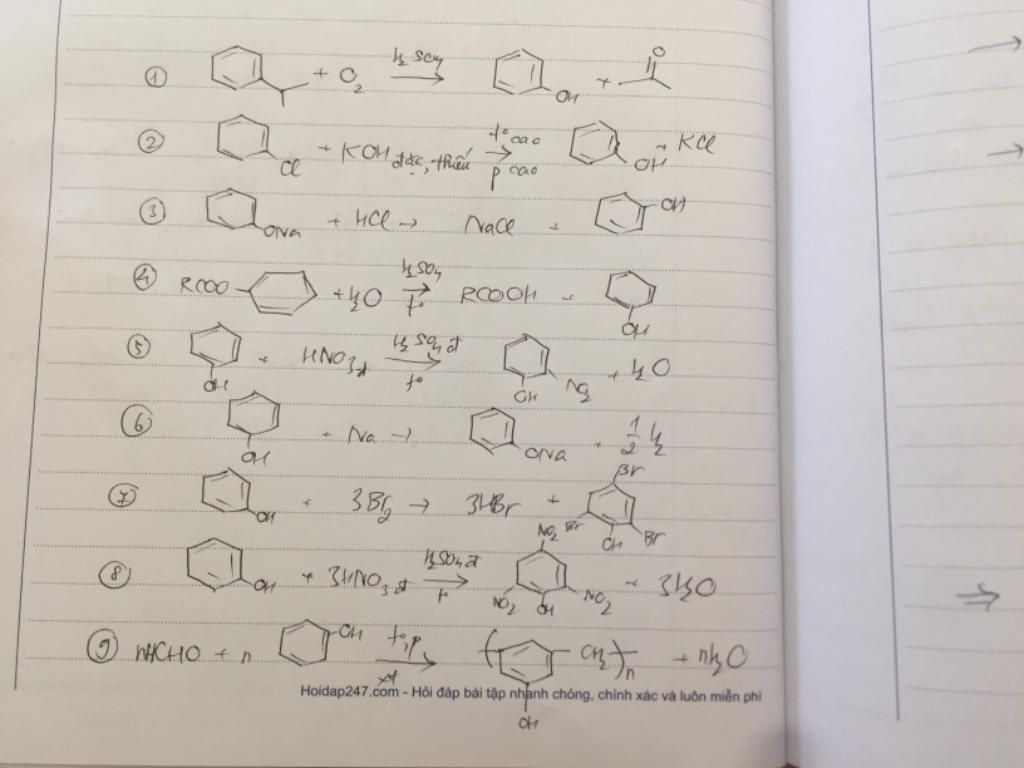 ① + O₂ H₂SO₄ → OH + O
② Cl + KOH đặc, thiếu t° cao → p cao OH + KCl
③ ONa + HCl → NaCl + OH
④ RCOO + H₂O H₂SO₄ → t° RCOOH + OH
⑤ OH + HNO₃ đ H₂SO₄ đ → t° OH NO₂ + H₂O
⑥ OH + Na → ONa + 1/2 H₂
⑦ OH + 3Br₂ → 3HBr + Br Br OH Br
⑧ OH + 3HNO₃ đ H₂SO₄ đ → t° NO₂ NO₂ OH NO₂ + 3H₂O
⑨ nHCHO + n OH t°, p → xt ( CH₂ )n OH + nH₂O
Hoidap247.com - Hỏi đáp bài tập nhanh chóng, chính xác và luôn miễn phí